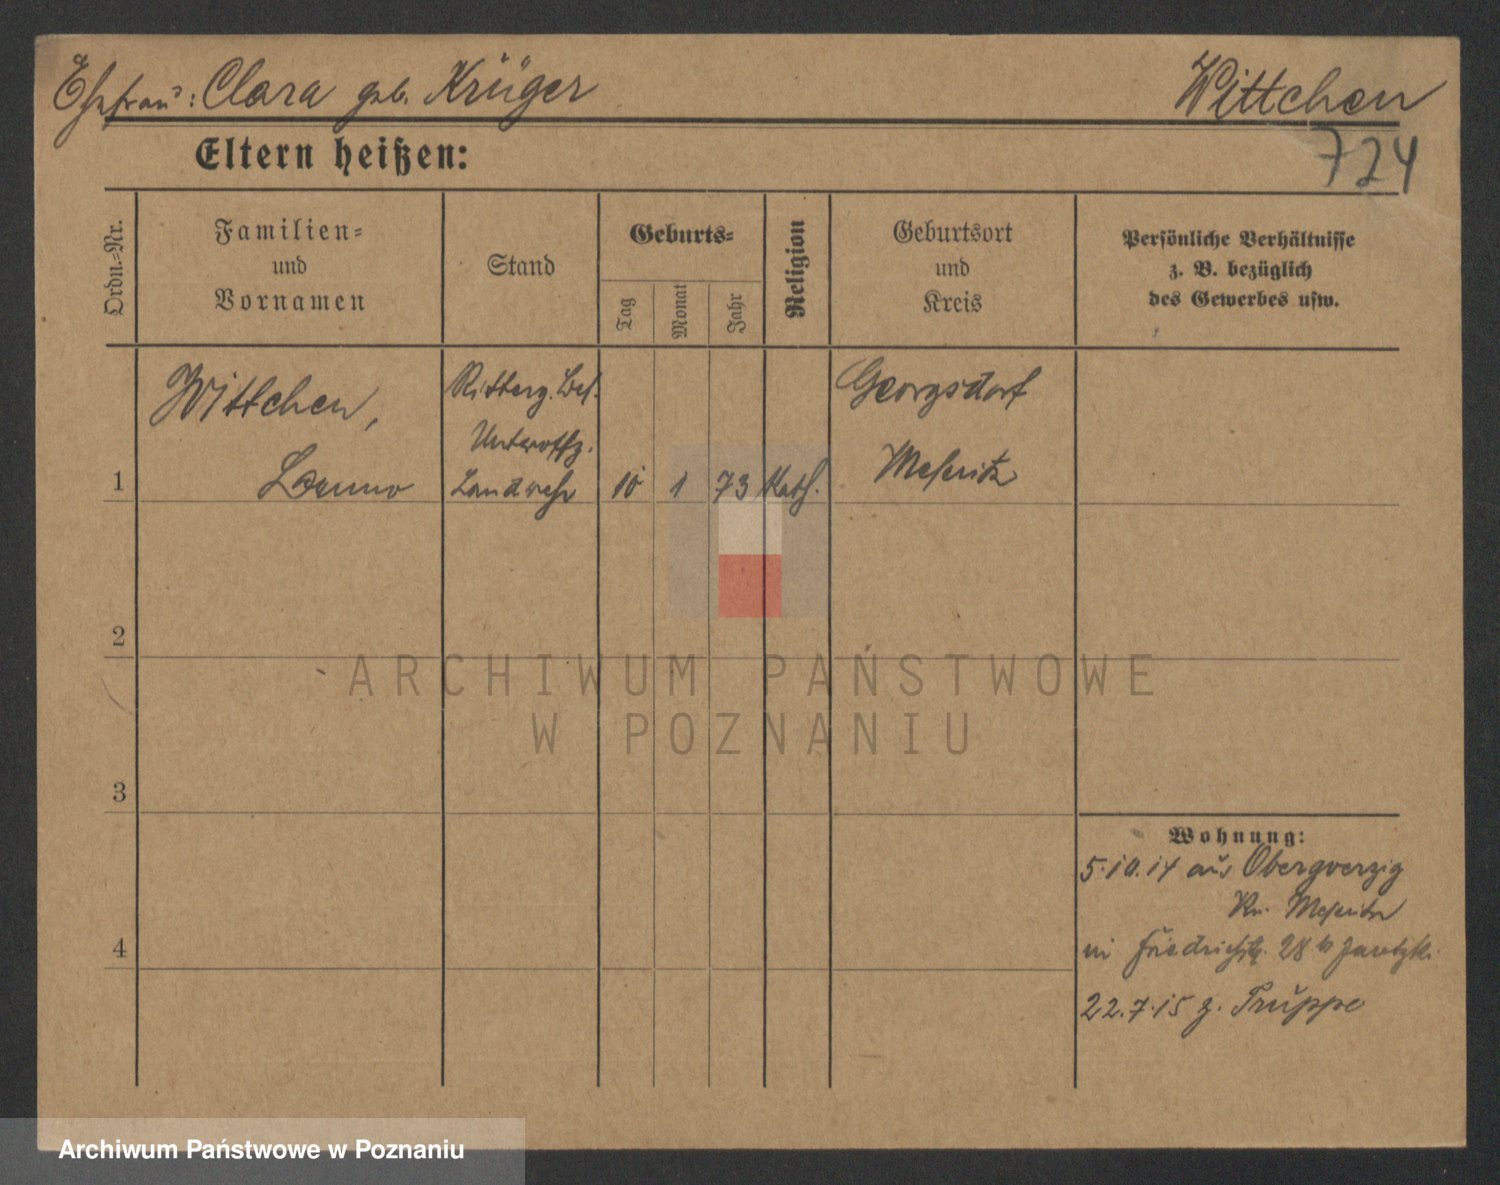 Ehefrau: Clara geb. Krüger
Wittchen
724
Eltern heißen:
Ordn.-Nr.
Familien-
und
Vornamen
Stand
Geburts-
Tag
Monat
Jahr
Religion
Geburtsort
und
Kreis
Persönliche Verhältnisse
z. B. bezüglich
des Gewerbes usw.
1
Wittchen,
Ritterg. Bes.
Unteroffz.
Landwehr
10
1
73
Kath.
Georgsdorf
Meseritz
2
3
4
Wohnung:
5.10.14 aus Obergörzig
Kr. Meseritz
in Friedrichstr. 28
22.7.15 z. Truppe
ARCHIWUM PAŃSTWOWE
W POZNANIU
Archiwum Państwowe w Poznaniu